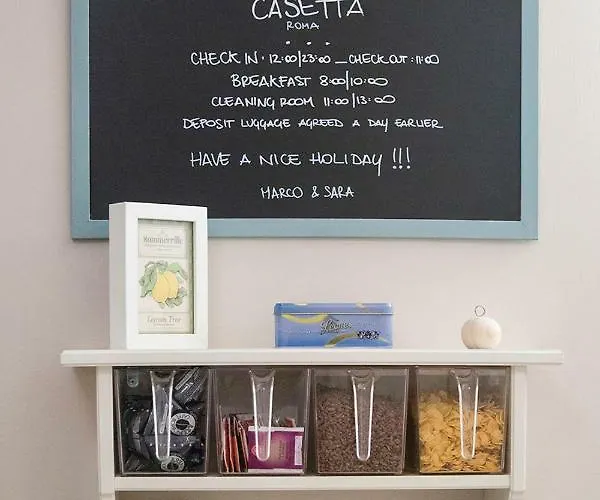 CASETTA
ROMA
CHECK IN · 12:00/23:00 _ CHECK OUT : 11:00
BREAKFAST 8:00/10:00
CLEANING ROOM 11:00/13:00
DEPOSIT LUGGAGE AGREED A DAY EARLIER
HAVE A NICE HOLIDAY !!!
MARCO & SARA
Lemon Tree